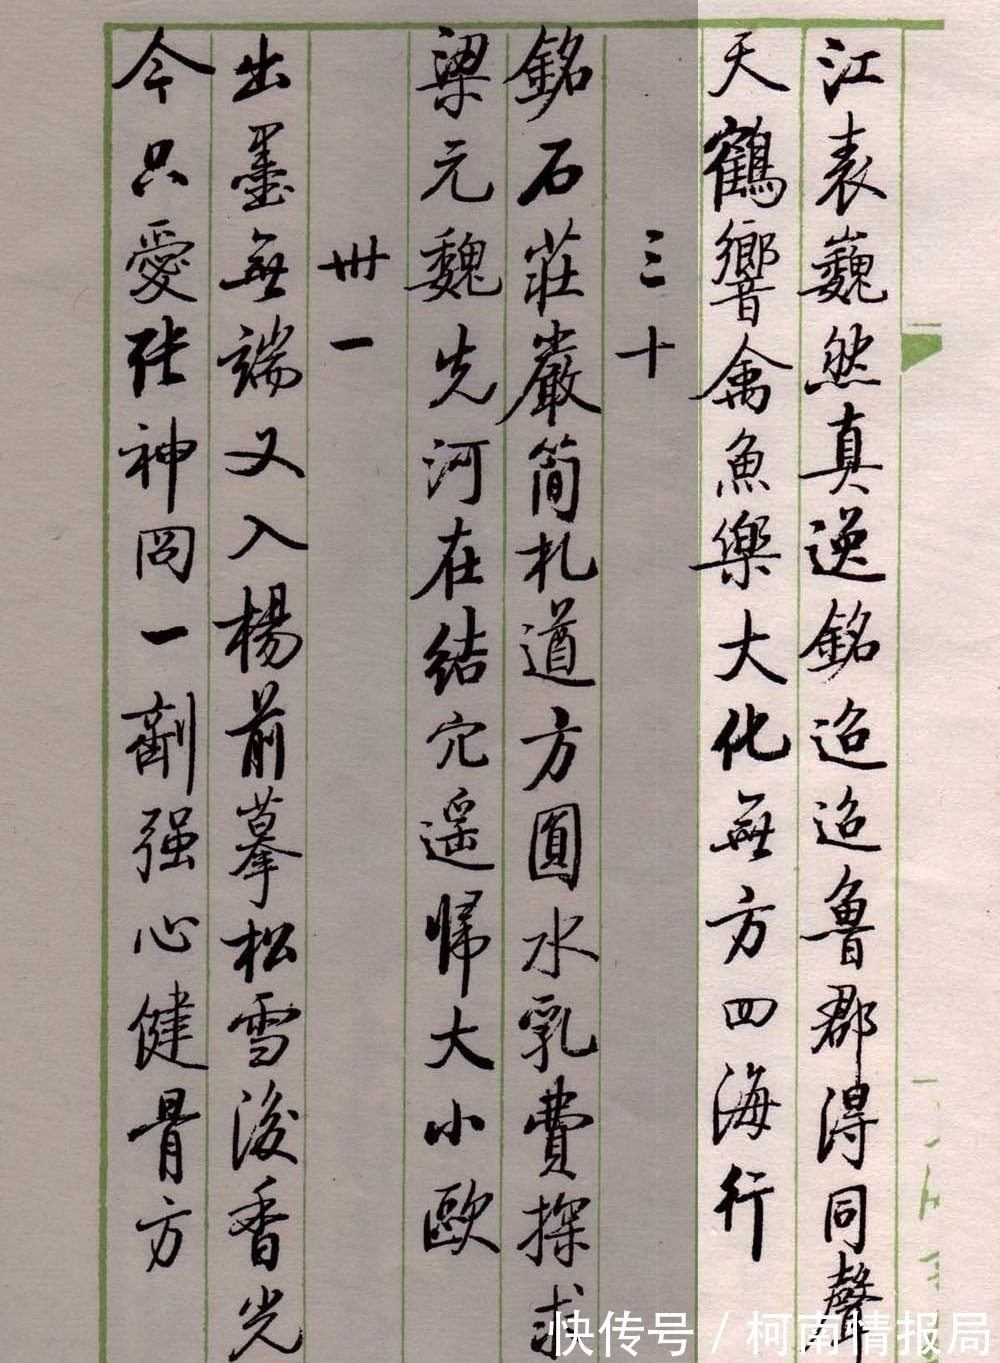 江表巍然真逸銘迢迢魯郡得同聲
天鶴響禽魚樂大化無方四海行
三十
銘石莊嚴簡札遒方圓水乳費探求
梁元魏先河在結穴遥歸大小歐
卅一
出墨無端又入楊前摹松雪後香光
今只愛張神冏一劑强心健骨方
快传号 / 柯南情报局